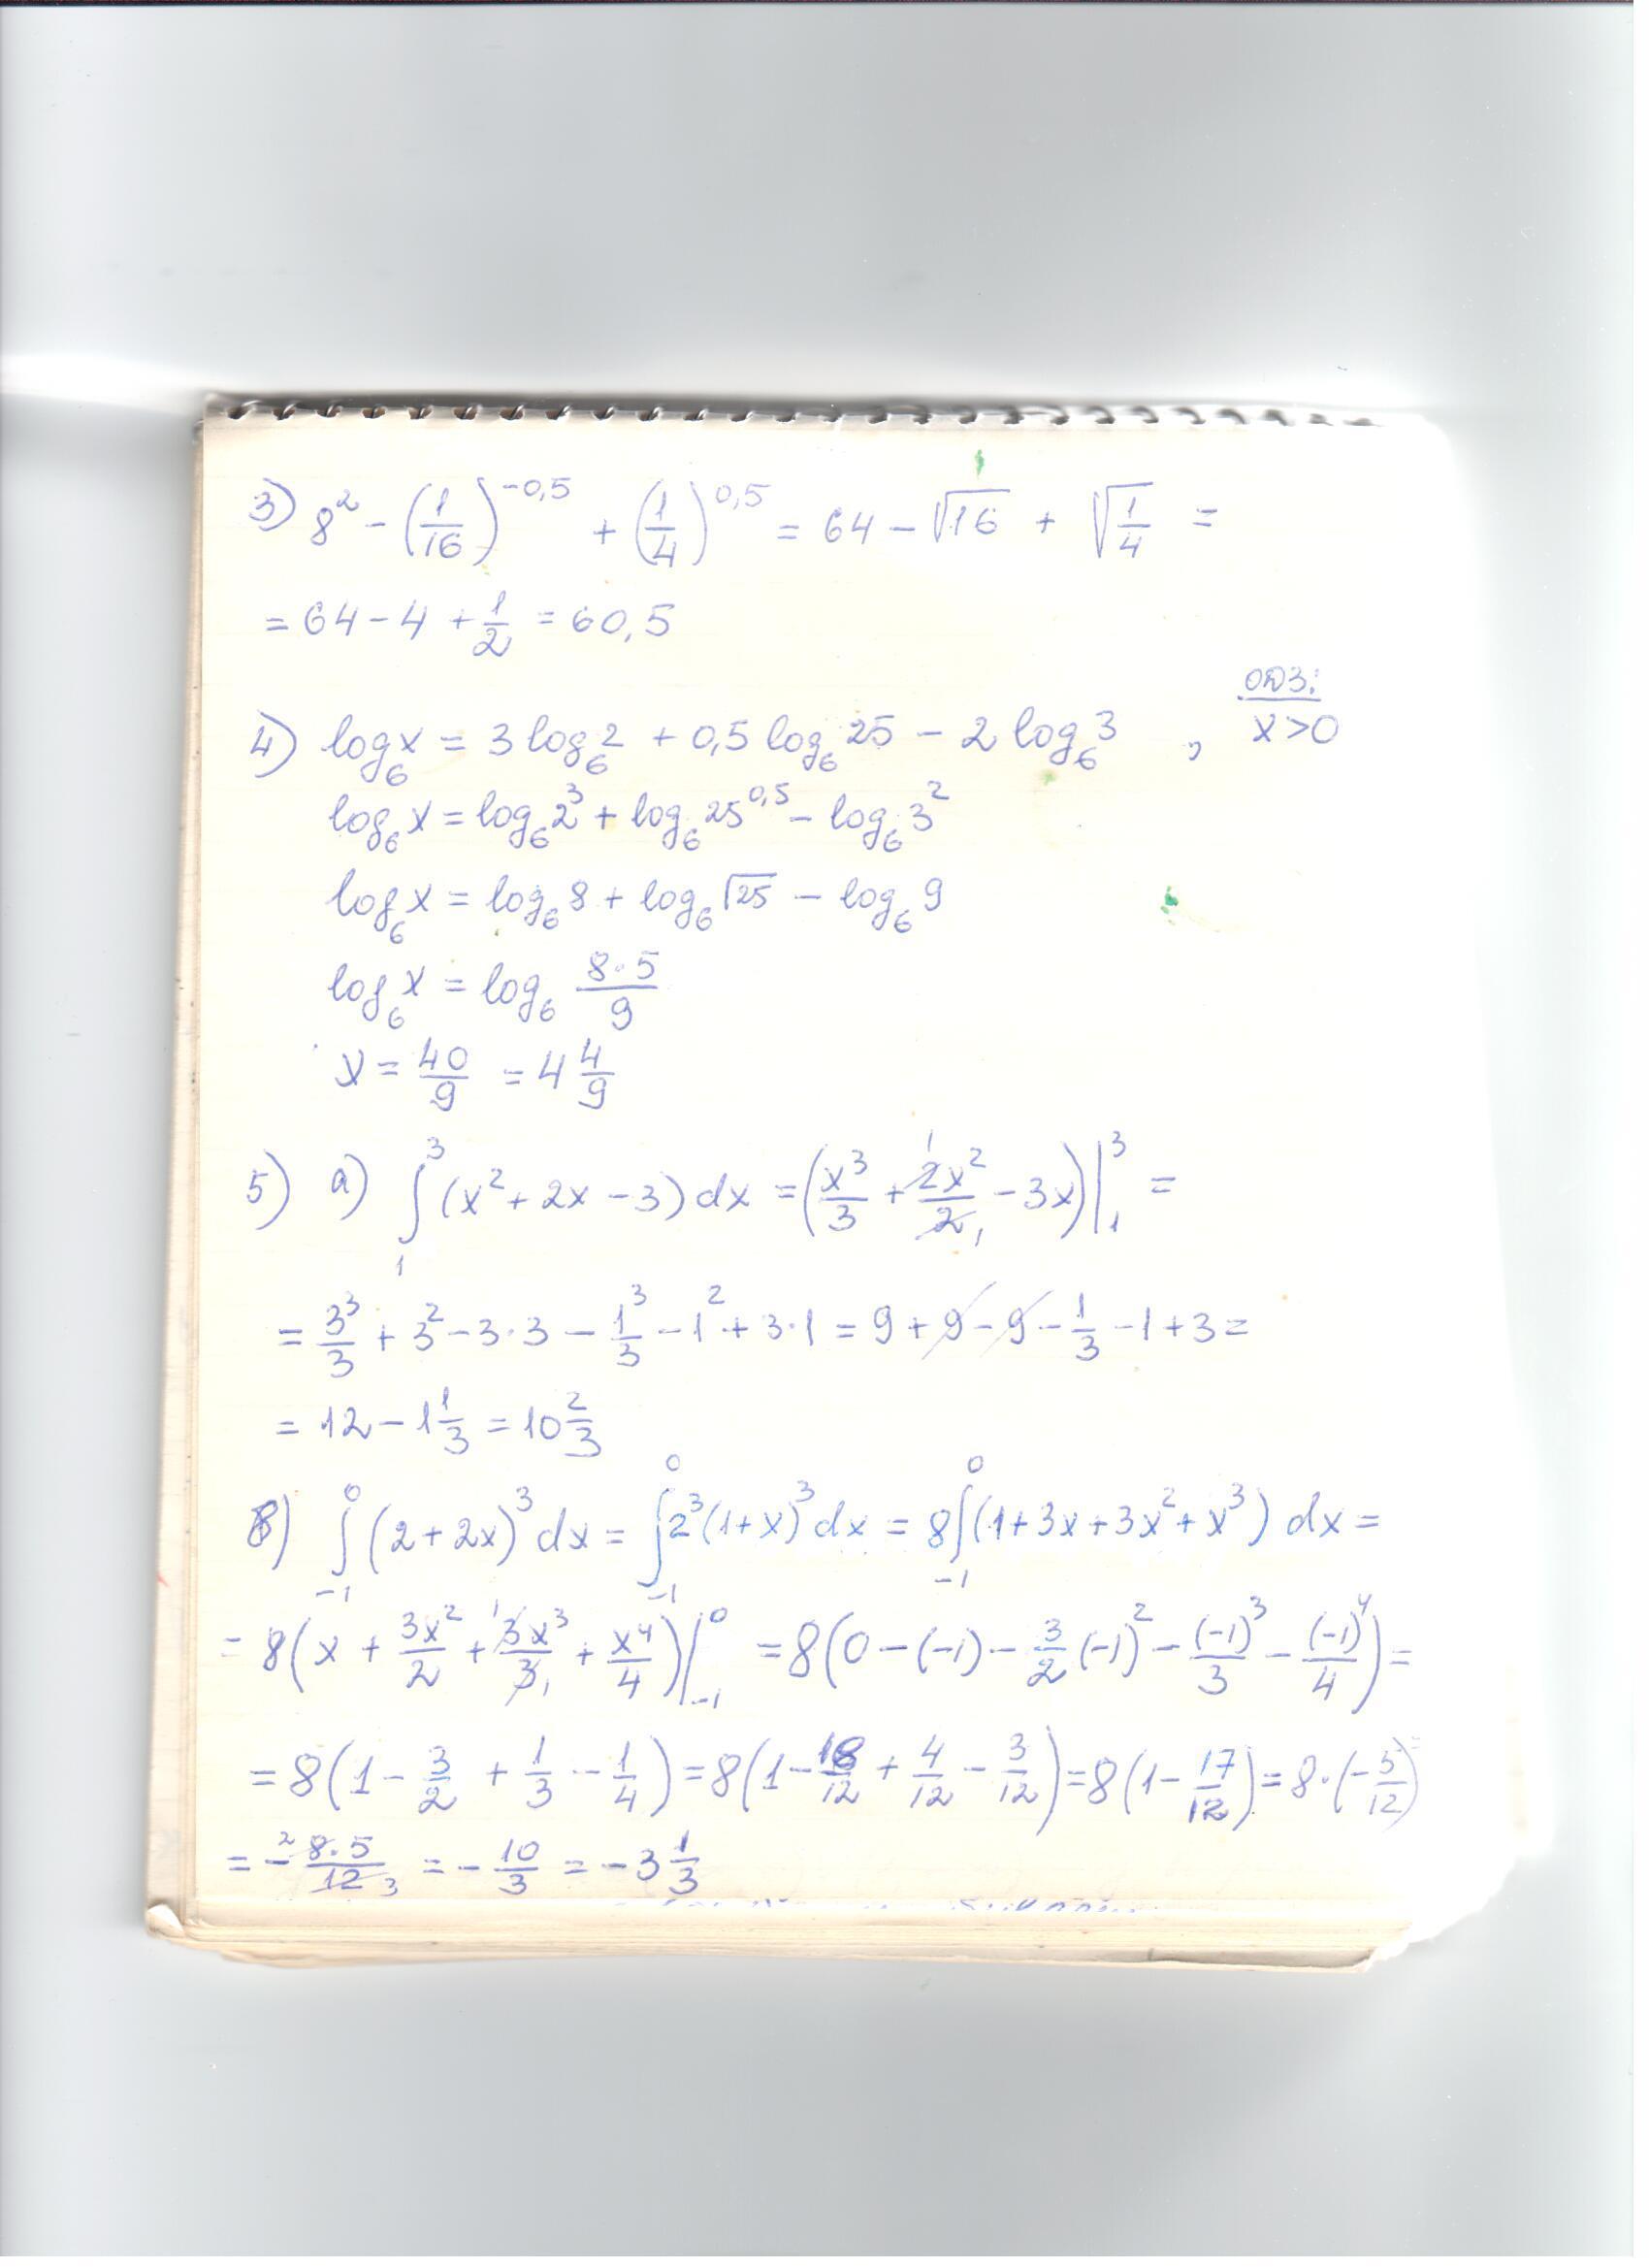 3) 8² - (1/16)^-0,5 + (1/4)^0,5 = 64 - √16 + √(1/4) =
= 64 - 4 + 1/2 = 60,5
ОДЗ:
4) log₆x = 3 log₆2 + 0,5 log₆25 - 2 log₆3 , x>0
log₆x = log₆2³ + log₆25^0,5 - log₆3²
log₆x = log₆8 + log₆√25 - log₆9
log₆x = log₆ (8·5)/9
x = 40/9 = 4 4/9
5) а) ∫₁³ (x² + 2x - 3) dx = (x³/3 + 2x²/2 - 3x)|₁³ =
= 3³/3 + 3² - 3·3 - 1³/3 - 1² + 3·1 = 9 + 9 - 9 - 1/3 - 1 + 3 =
= 12 - 1 1/3 = 10 2/3
в) ∫₋₁⁰ (2+2x)³ dx = ∫₋₁⁰ 2³(1+x)³ dx = 8∫₋₁⁰ (1+3x+3x²+x³) dx =
= 8(x + 3x²/2 + 3x³/3 + x⁴/4)|₋₁⁰ = 8(0 - (-1) - 3/2 (-1)² - (-1)³/3 - (-1)⁴/4) =
= 8(1 - 3/2 + 1/3 - 1/4) = 8(1 - 18/12 + 4/12 - 3/12) = 8(1 - 17/12) = 8·(-5/12) =
= - 8·5/12 = - 10/3 = - 3 1/3